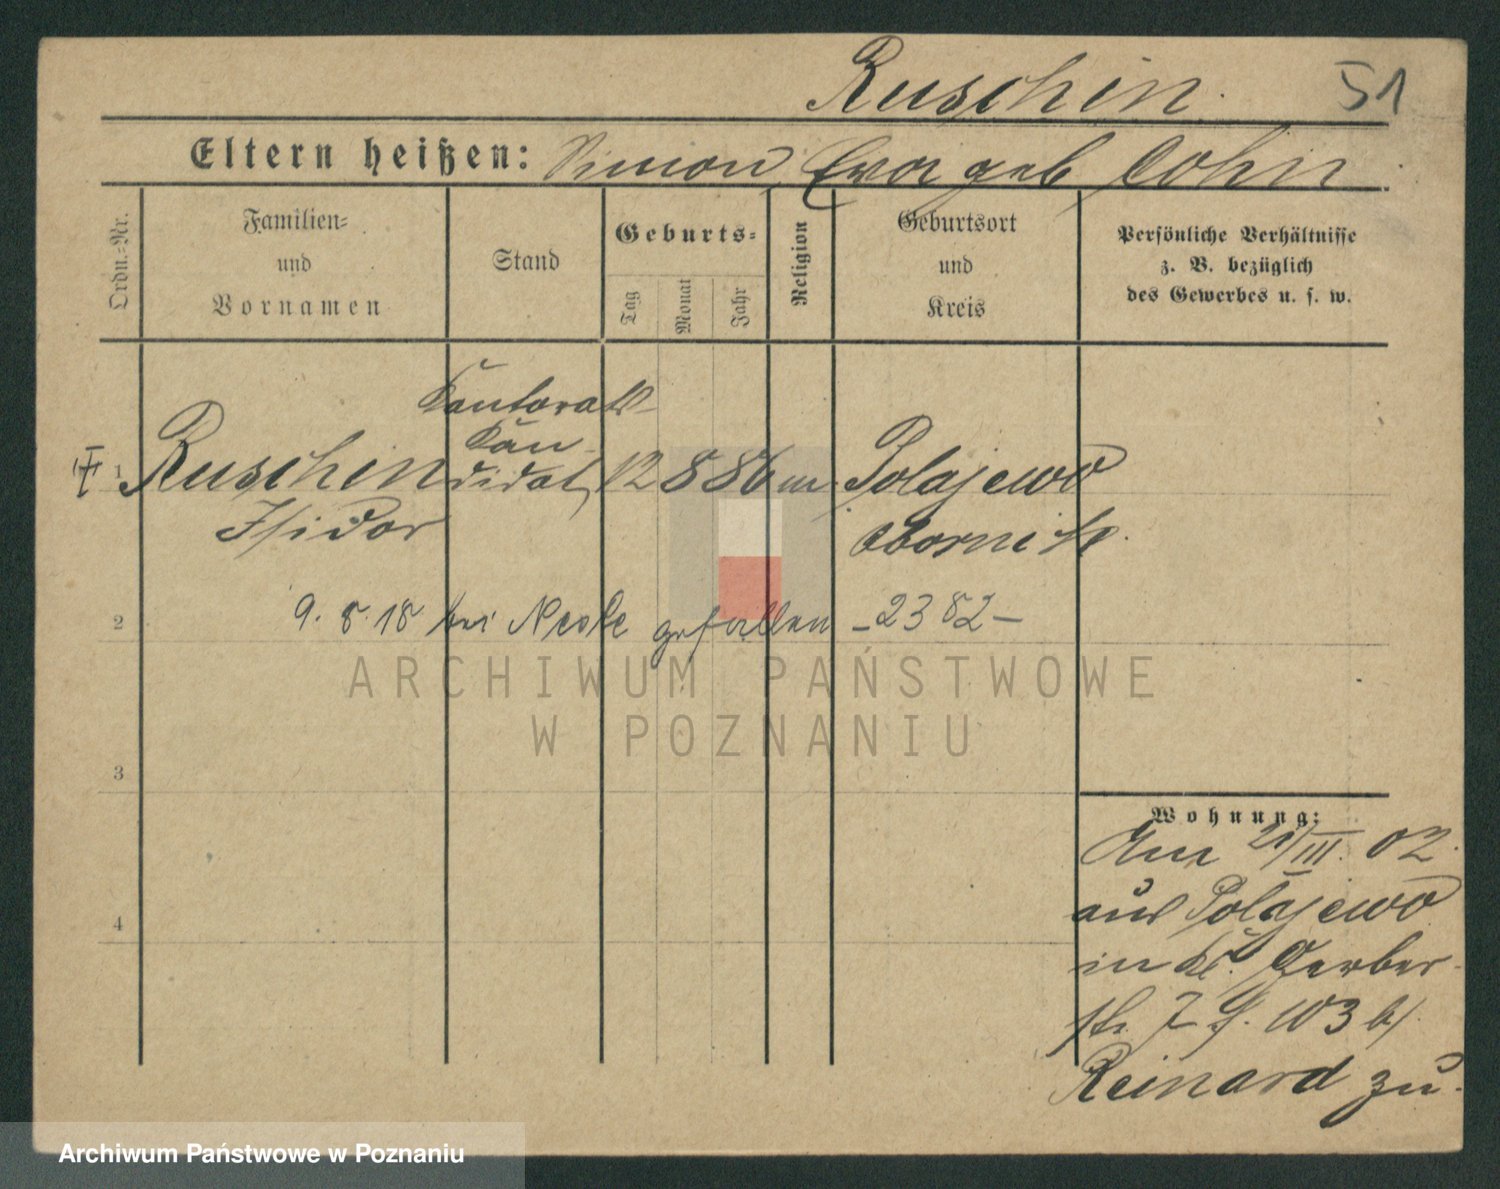 Ruschin. 51
Eltern heißen: Simon, Eva geb Cohn
Ordn.-Nr.
Familien-
und
Vornamen
Stand
Geburts-
Tag
Monat
Jahr
Religion
Geburtsort
und
Kreis
Persönliche Verhältnisse
z. B. bezüglich
des Gewerbes u. s. w.
Kantorats
Kan-
1 Ruschin didat 12 8 86 m. Polajewo
Isidor Obornik.
2 9. 8. 18 bei gefallen - 2382 -
ARCHIWUM PAŃSTWOWE
W POZNANIU
3
Wohnung:
Am 21/III. 02.
4 aus Polajewo
in Kl. Gerber-
str. 7 103 b/
Reinard zu.
Archiwum Państwowe w Poznaniu